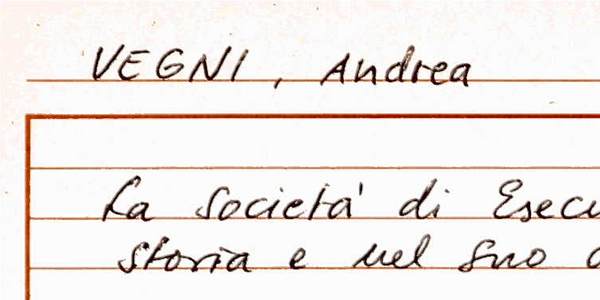 VEGNI, Andrea
La Società di Esecu
storia e nel suo